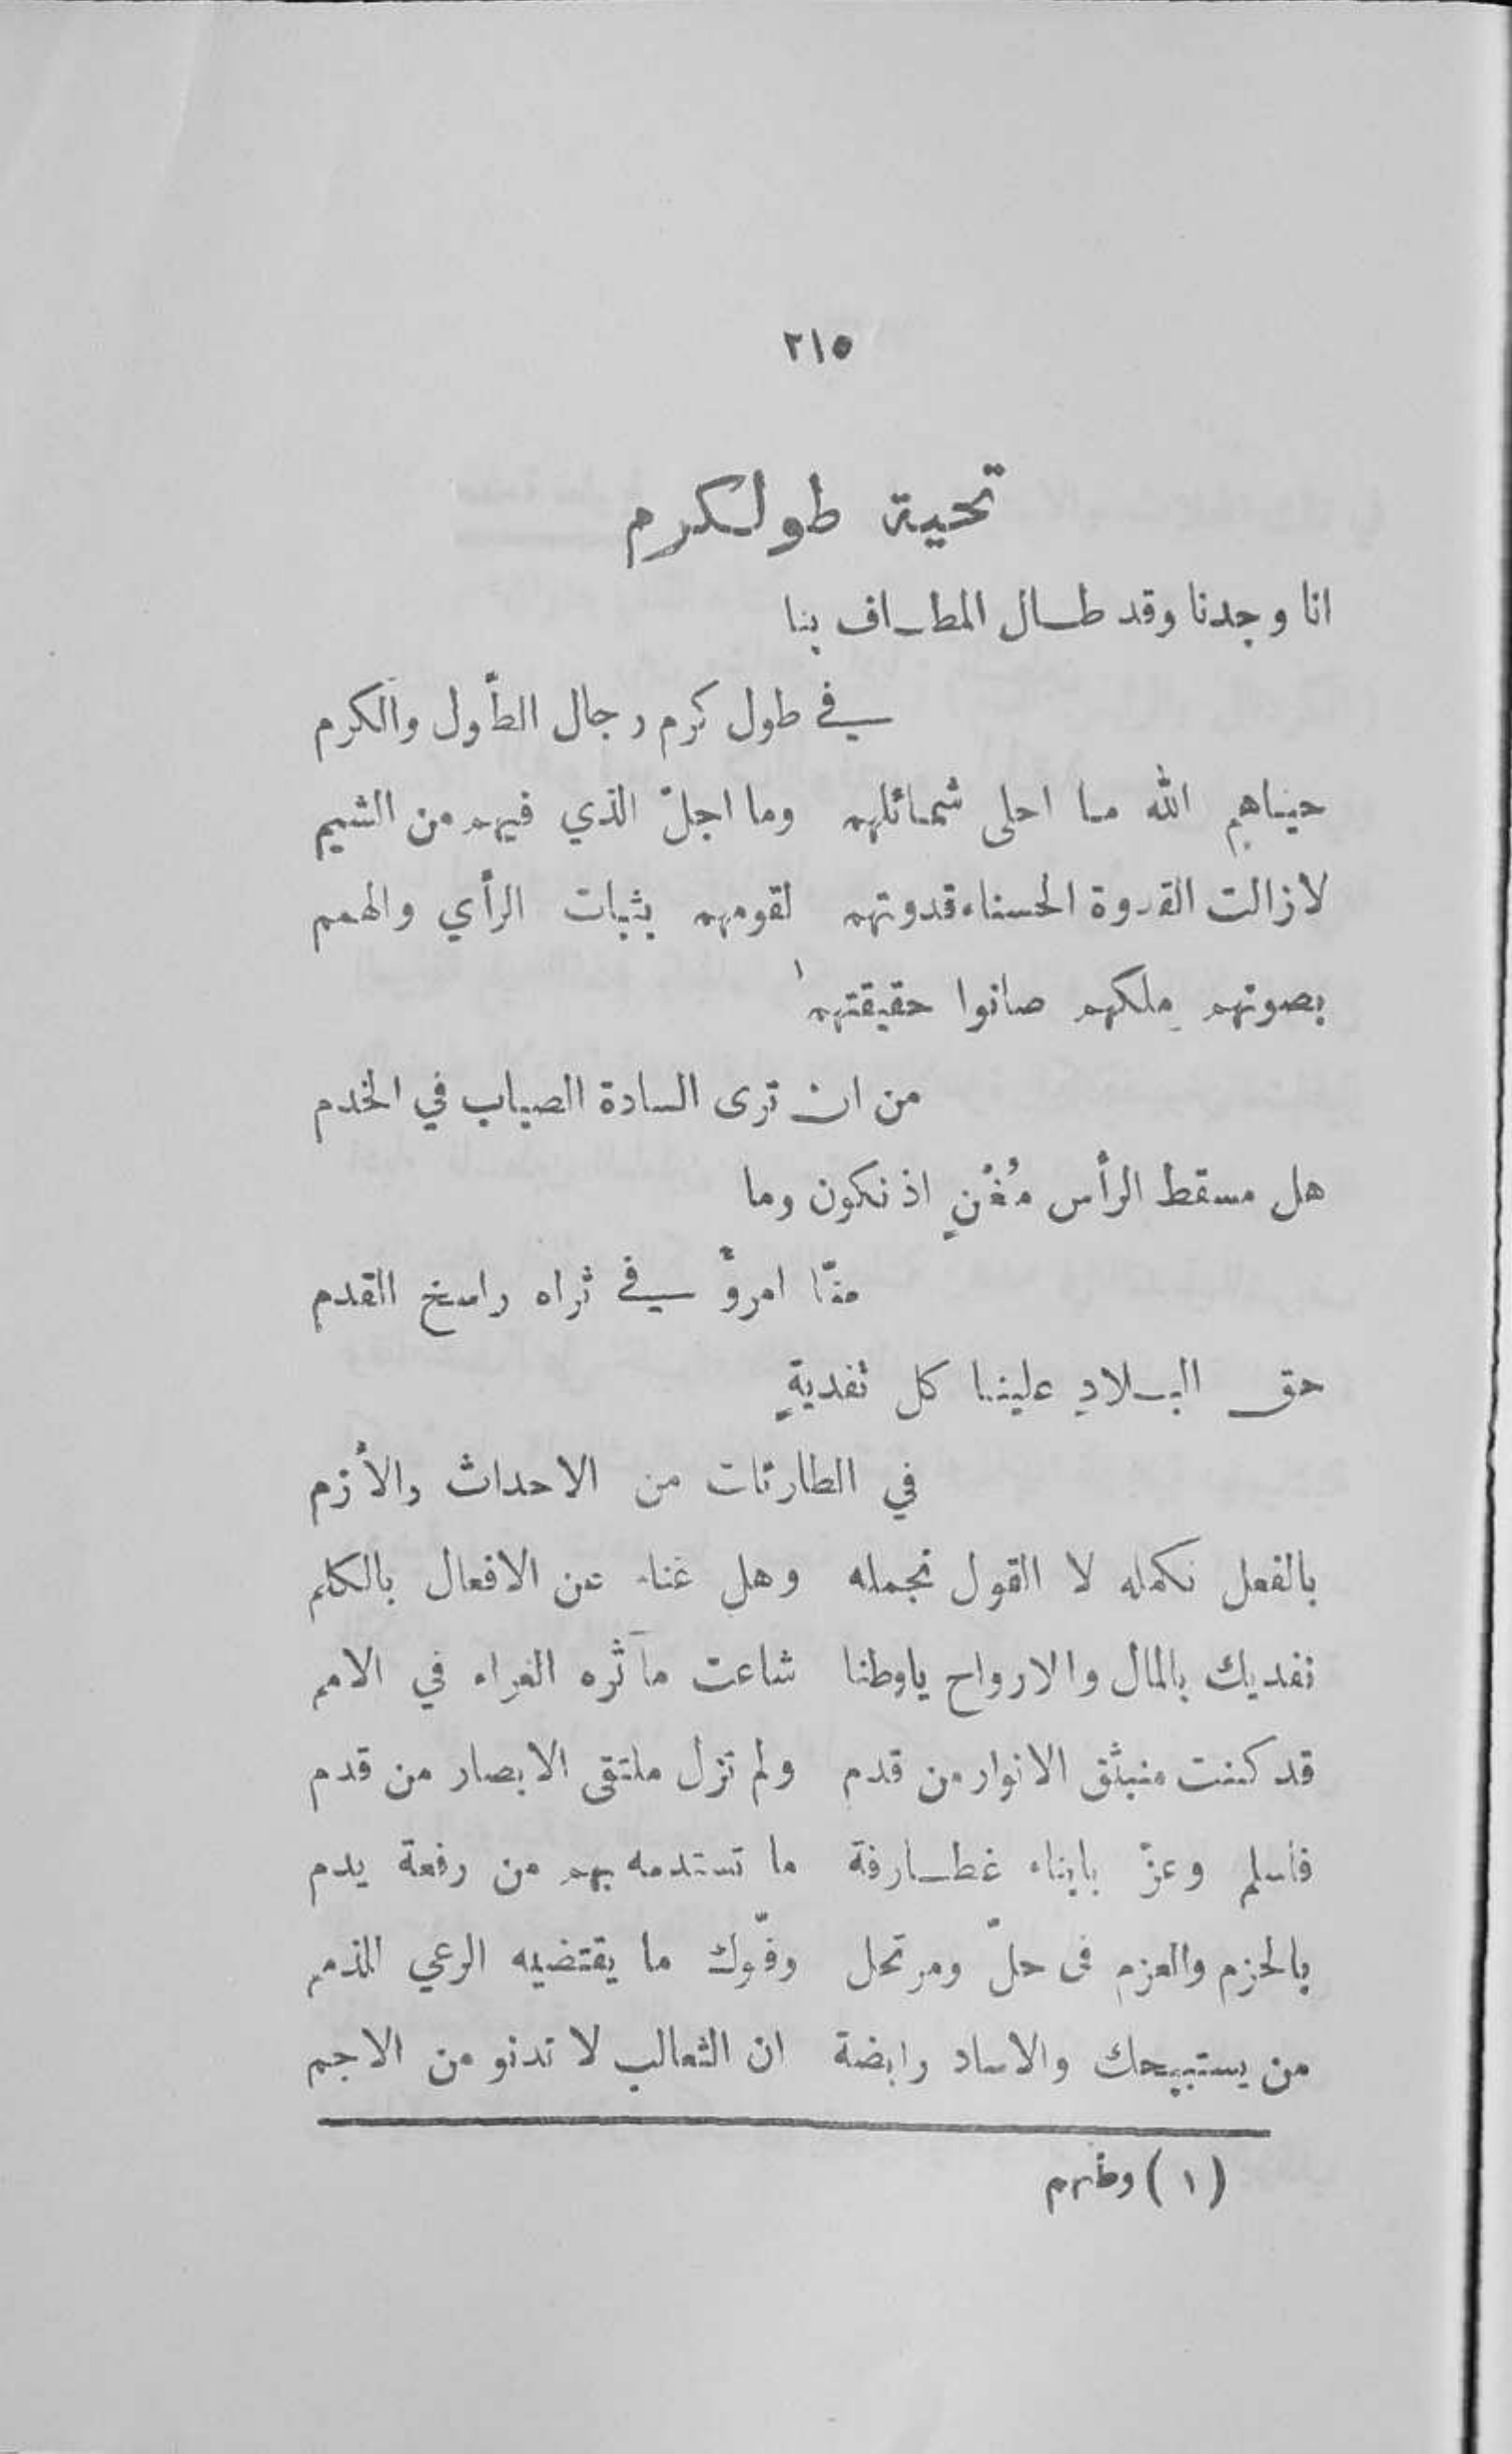 ٢١٥
تحية طولكرم
انا وجدنا وقد طال المطاف بنا
في طول كرم رجال الطَّول والكرم
حياهمِ الله ما احلى شمائلهم وما اجلّ الذي فيهم من الشيم
لا زالت القدوة الحسناء قدوتهم لقومهم بثبات الرأي والهمم
بصونهم ملكهم صانوا حقيقتهم١
من ان ترى السادة الصياب في الخدم
هل مسقط الرأس مُغْنٍ اذ نكون وما
منّا امروٌ في ثراه راسخ القدم
حق البلادِ علينا كل تفديةٍ
في الطارئات من الاحداث والأزم
بالفعل نكمله لا القول نجمله وهل غناء عن الافعال بالكلم
نفديك بالمال والارواح ياوطنا شاعت مآثره الغراء في الامم
قد كنت منبثق الانوار من قدم ولم تزل ملتقى الابصار من قدم
فاسلم وعزّ بابناء غطارفة ما تستدمه بهم من رفعة يدم
بالحزم والعزم فى حلّ ومرتحل وفّوك ما يقتضيه الرعي للذمم
من يستبيحك والاساد رابضة ان الثعالب لا تدنو من الاجم
(١) وطنهم